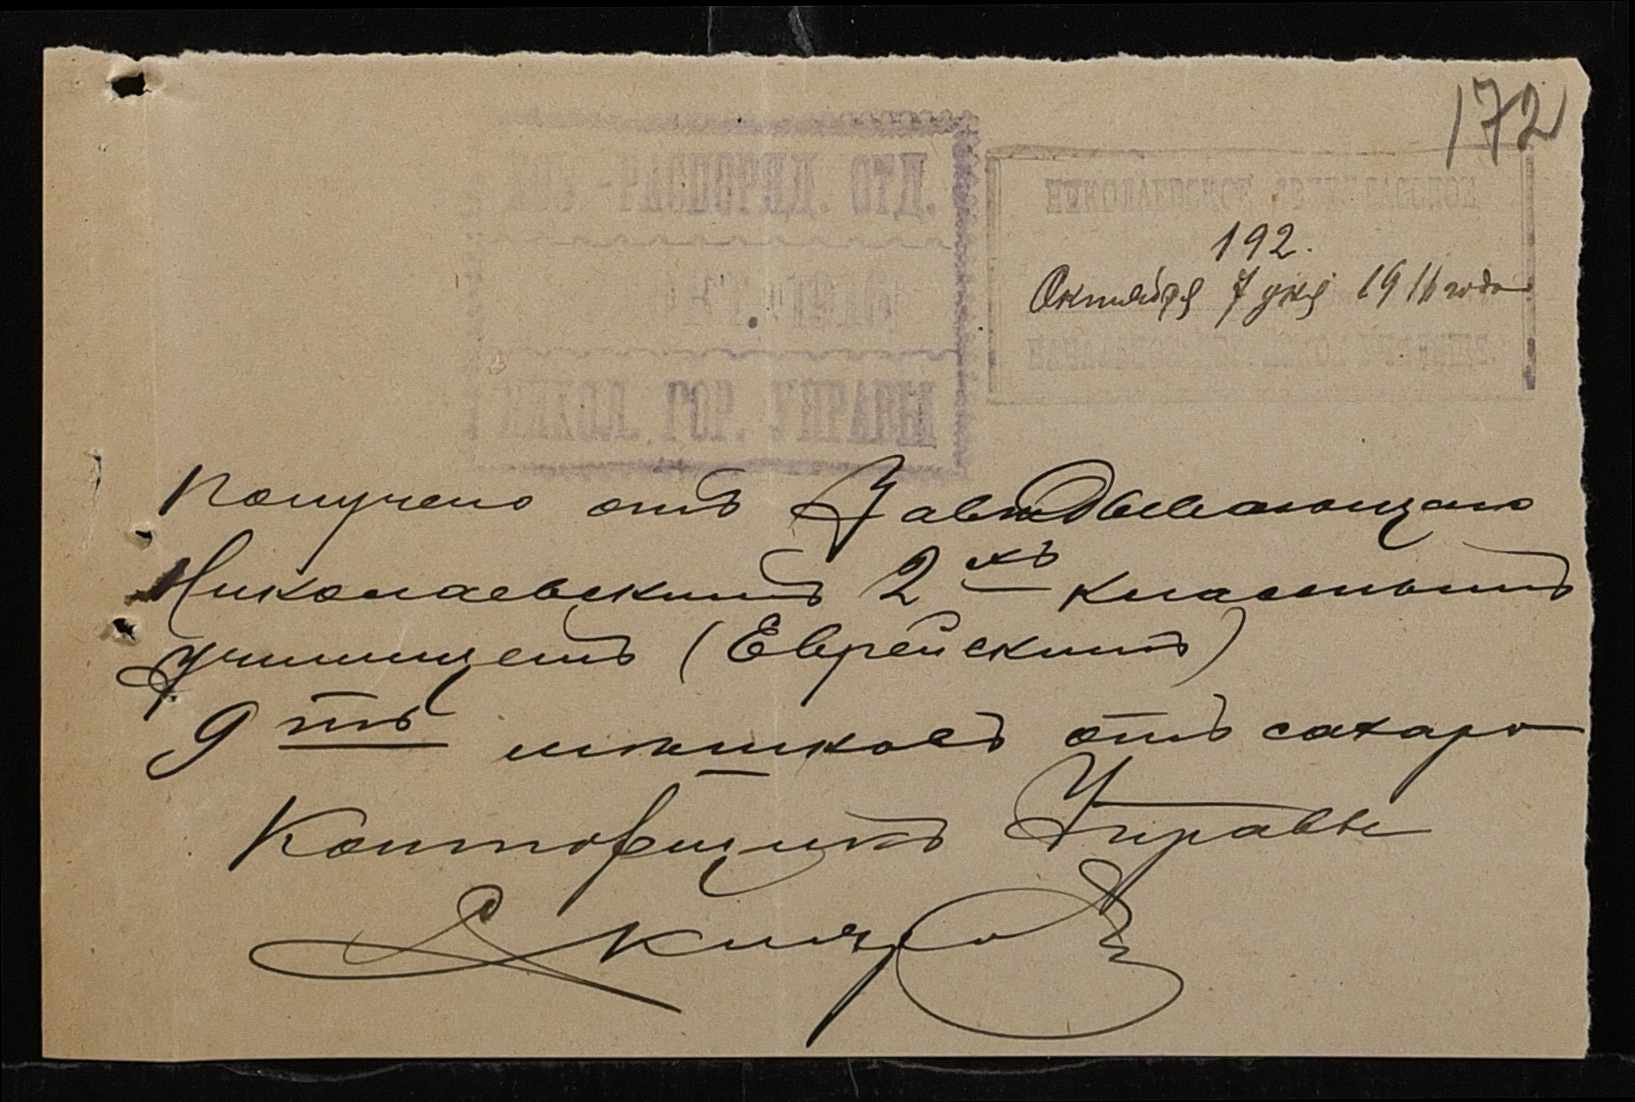 172
РАСПОРЯД. ОТД.
НИКОЛ. ГОР. УПРАВЫ
НИКОЛАЕВСКОЕ
192.
Октября 7 дня 1916 года
Получено отъ Завѣдывающаго
Николаевскимъ 2хъ класснымъ
училищемъ (Еврейскимъ)
9ть мѣшковъ отъ сахара
Конторщикъ Управы